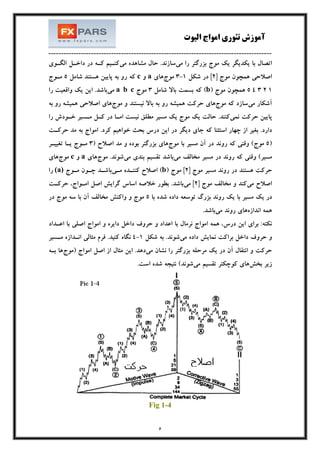 FXPARS
WWW.FXPARS.COM
آموزش تئوری امواج الیوت
اتصال با یکدیگر یک موج بزرگتر را می‌سازند. حال مشاهده می‌کنیم که در داخل الگوی
اصلاحی همچون موج [۲] در شکل ۱-۳ موج‌های a و c که رو به پایین هستند شامل ۵ موج
۱ ۲ ۳ ٤ ٥ همچون موج (b) که بسمت بالا شامل ۳ موج a b c می‌باشد. این یک واقعیت را
آشکار می‌سازد که موج‌های حرکت همیشه رو به بالا نیستند و موج‌های اصلاحی همیشه رو به
پایین حرکت نمی‌کنند. حالت یک موج یک مسیر مطلق نیست اما در کل مسیر خودش را
دارد. بغیر از چهار استثنا که جای دیگر در این درس بحث خواهیم کرد. امواج به مد حرکت
(۵ موج) وقتی که روند در آن مسیر با موج‌های بزرگتر بوده و مد اصلاح (۳ موج یا تغییر
مسیر) وقتی که روند در مسیر مخالف می‌باشد تقسیم بندی می‌شوند. موج‌های a و c موج‌های
حرکت هستند در روند مسیر موج [۲] موج (b) اصلاح کننده می‌باشند چون موج (a) را
اصلاح می‌کند و مخالف موج [۲] می‌باشد. بطور خلاصه اساس گرایش اصل امواج، حرکت
در یک مسیر با یک روند بزرگ توسعه داده شده با ۵ موج و واکنش مخالف آن با سه موج در
همه اندازه‌های روند می‌باشد.
نکته: برای این درس، همه امواج نرمال با اعداد و حروف داخل دایره و امواج اصلی با اعداد
و حروف داخل براکت نمایش داده می‌شوند. به شکل ۱-٤ نگاه کنید. فرم مثالی اندازه مسیر
حرکت و انتقال آن در یک مرحله بزرگتر را نشان می‌دهد. این مثال از اصل امواج (موج‌ها به
زیر بخش‌های کوچکتر تقسیم می‌شوند) نتیجه شده است.
Pic 1-4
حرکت
اصلاح
Motive Wave
(Impulse)
Corrective Wave
(Zigzag)
Complete Market Cycle
Fig 1-4